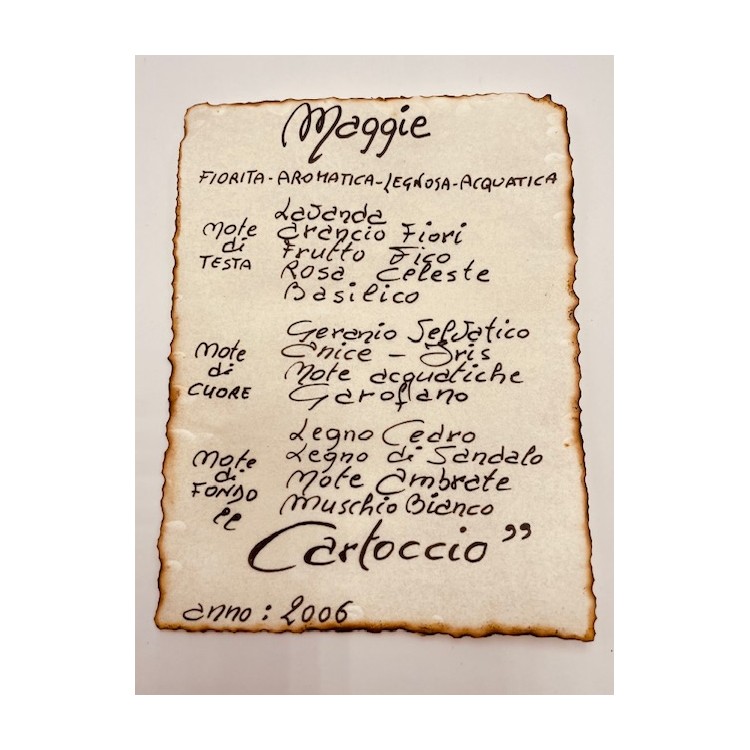 Maggie
FIORITA-AROMATICA-LEGNOSA-ACQUATICA
Note di TESTA
Lavanda
Arancio Fiori
Frutto Fico
Rosa Celeste
Basilico
Note di CUORE
Geranio Selvatico
Anice - Iris
Note acquatiche
Garofano
Note di FONDO
Legno Cedro
Legno di Sandalo
Note Ambrate
Muschio Bianco
"Cartoccio"
anno: 2006